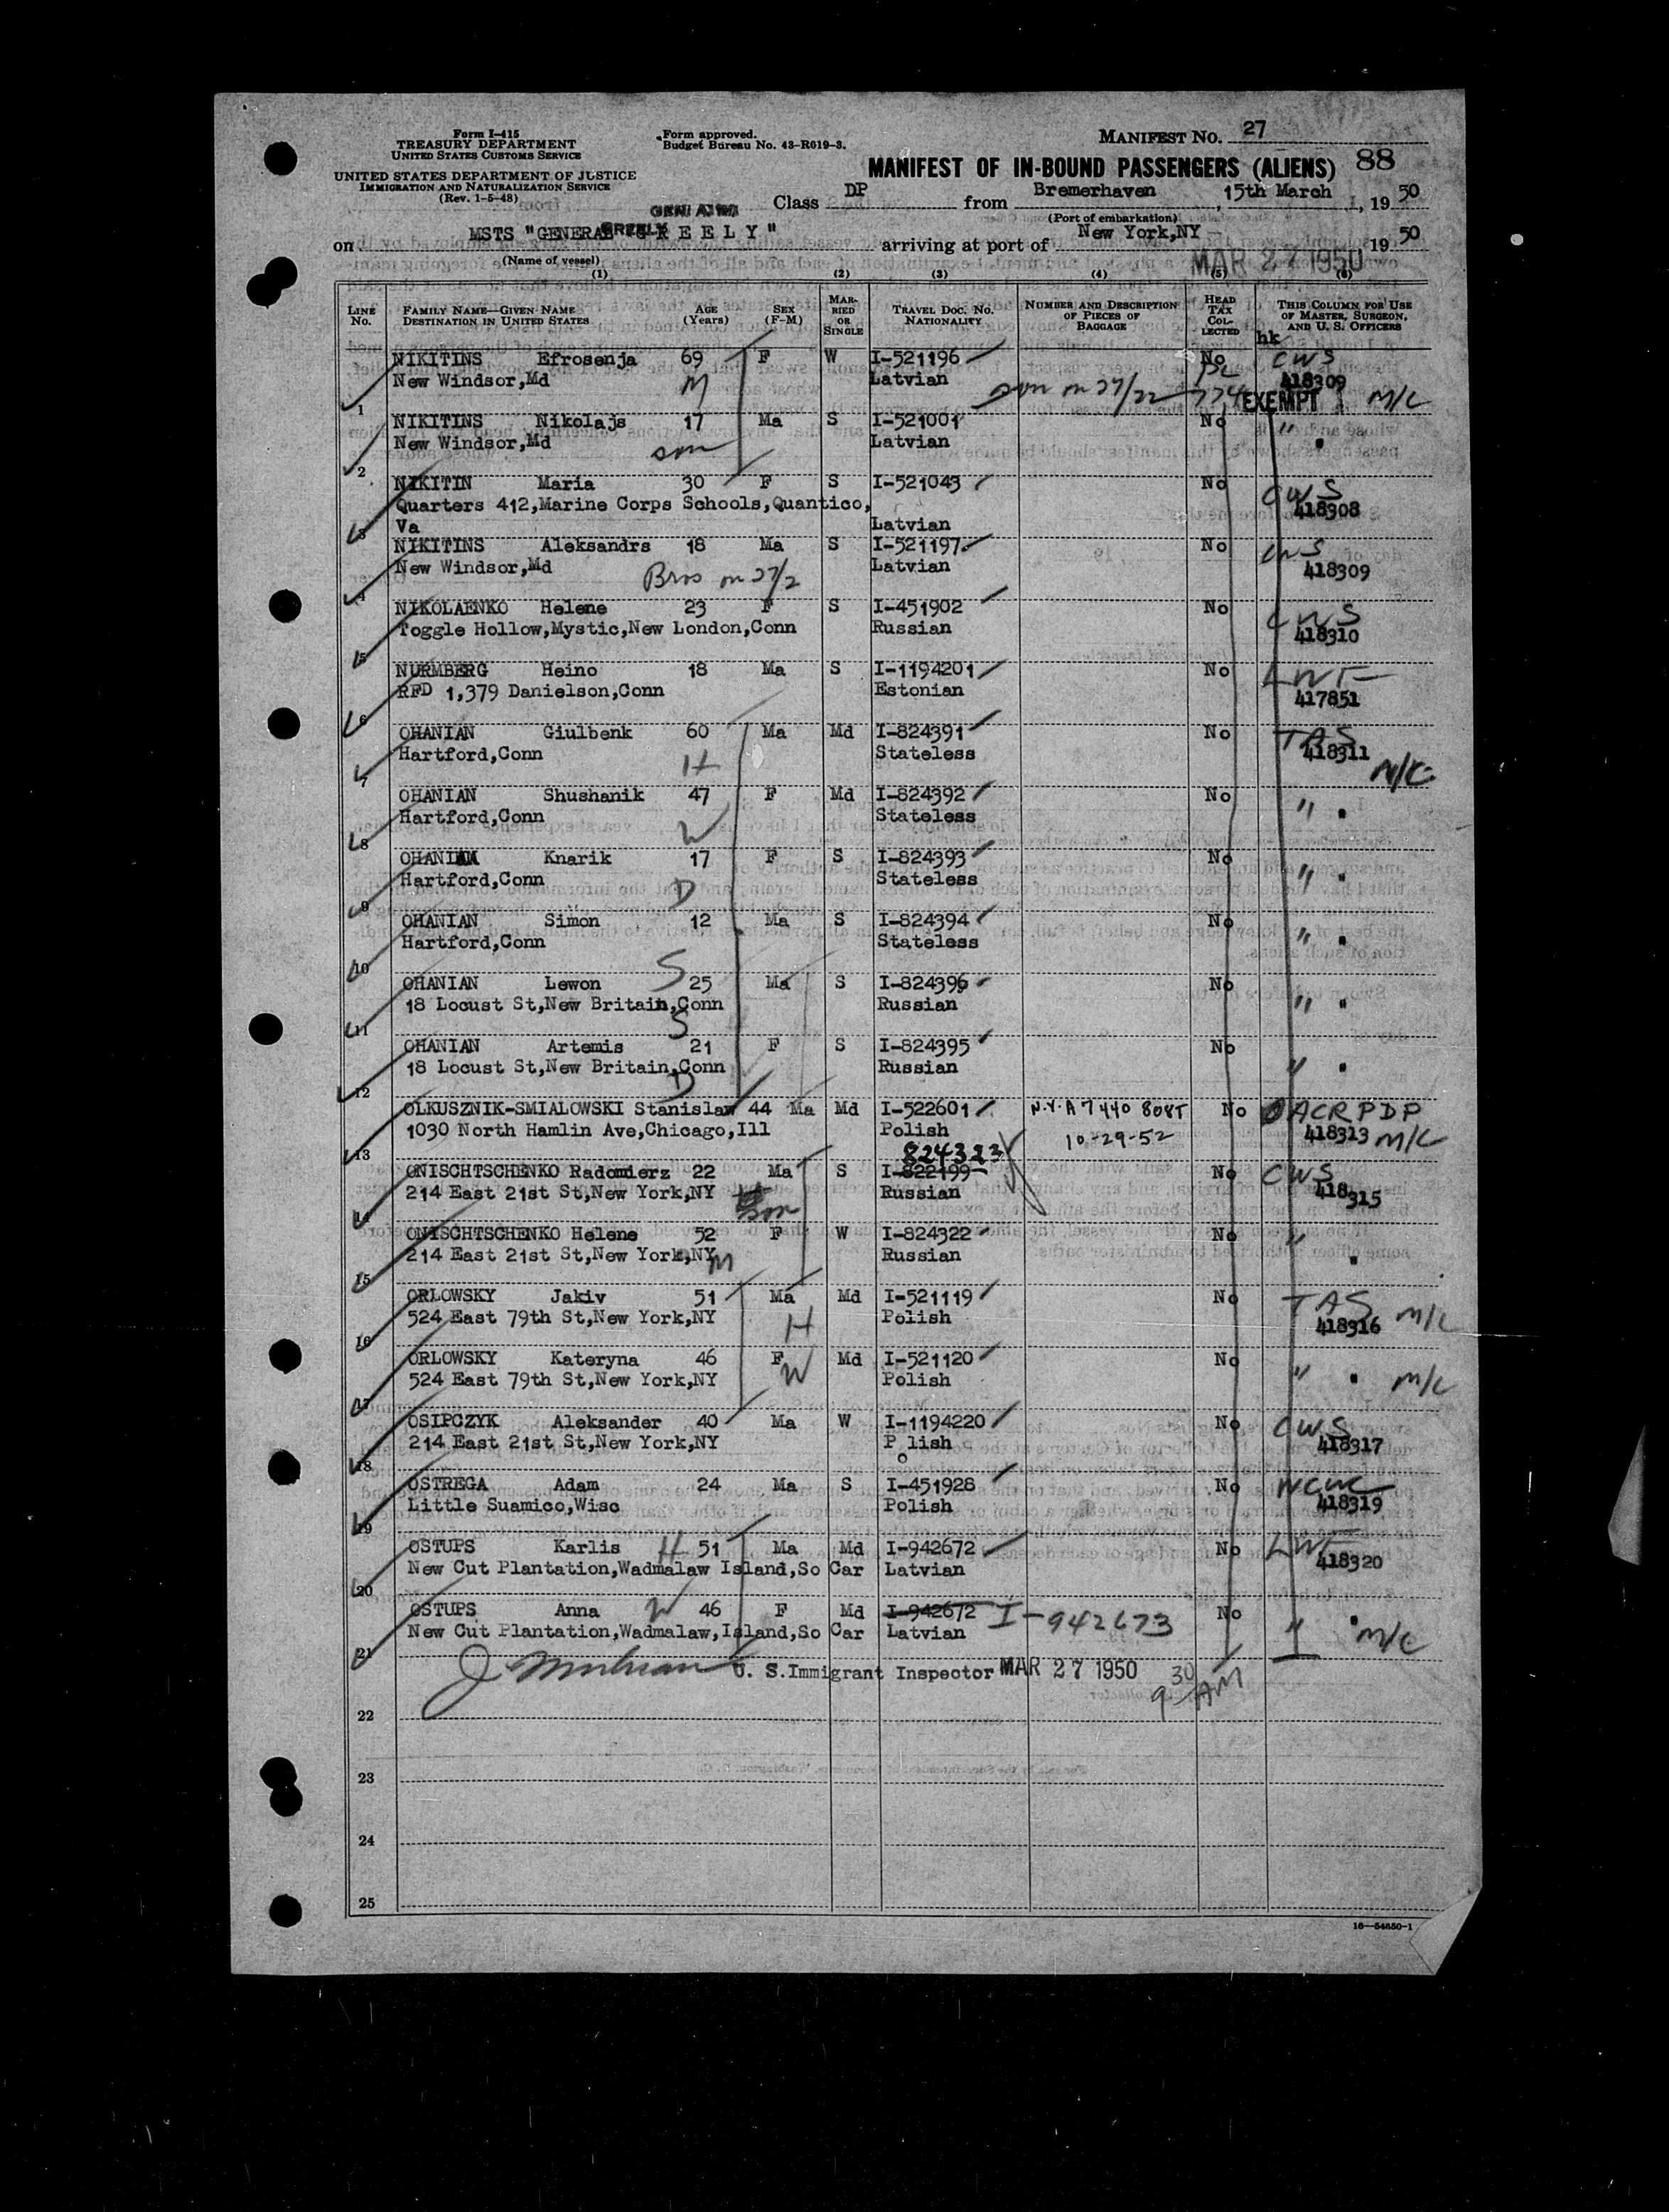 Form I-415
TREASURY DEPARTMENT
UNITED STATES CUSTOMS SERVICE
UNITED STATES DEPARTMENT OF JUSTICE
IMMIGRATION AND NATURALIZATION SERVICE
(Rev. 1-5-48)
Form approved.
Budget Bureau No. 43-R019-3.
MANIFEST No. 27
MANIFEST OF IN-BOUND PASSENGERS (ALIENS) 88
Class DP from Bremerhaven, 15th March, 1950
(Port of embarkation)
on MSTS "GENERAL GREELY" arriving at port of New York, NY 1950
(Name of vessel)
MAR 27 1950
(1) (2) (3) (4) (5) (6)
LINE No. FAMILY NAME—GIVEN NAME DESTINATION IN UNITED STATES AGE (Years) SEX (F-M) MARRIED OR SINGLE TRAVEL DOC. NO. NATIONALITY NUMBER AND DESCRIPTION OF PIECES OF BAGGAGE HEAD TAX COLLECTED THIS COLUMN FOR USE OF MASTER, SURGEON, AND U. S. OFFICERS
hk
NIKITINS Efrosenja 69 F W I-521196 No CWS
New Windsor,Md M Latvian son on 27/22 418309
1 EXEMPT M/C
NIKITINS Nikolajs 17 Ma S I-521001 No "
New Windsor,Md son Latvian "
2
NIKITIN Maria 30 F S I-521043 No CWS
Quarters 412,Marine Corps Schools,Quantico, 418308
3 Va Latvian
NIKITINS Aleksandrs 18 Ma S I-521197 No CWS
New Windsor,Md Bros on 27/2 Latvian 418309
4
NIKOLAENKO Helene 23 F S I-451902 No CWS
Toggle Hollow,Mystic,New London,Conn Russian 418310
5
NURMBERG Heino 18 Ma S I-1194201 No LWF
RFD 1,379 Danielson,Conn Estonian 417851
6
OHANIAN Giulbenk 60 Ma Md I-824391 No TAS
Hartford,Conn H Stateless 418311
7 M/C
OHANIAN Shushanik 47 F Md I-824392 No " "
Hartford,Conn W Stateless
8
OHANIAN Knarik 17 F S I-824393 No " "
Hartford,Conn D Stateless
9
OHANIAN Simon 12 Ma S I-824394 No " "
Hartford,Conn S Stateless
10
OHANIAN Lewon 25 Ma S I-824396 No " "
18 Locust St,New Britain,Conn S Russian
11
OHANIAN Artemis 21 F S I-824395 No " "
18 Locust St,New Britain,Conn D Russian
12
OLKUSZNIK-SMIALOWSKI Stanislaw 44 Ma Md I-522601 N.Y.A7440 808T No ACRPDP
1030 North Hamlin Ave,Chicago,Ill Polish 10-29-52 418313 M/C
13 824323
ONISCHTSCHENKO Radomierz 22 Ma S I-822199 No CWS
214 East 21st St,New York,NY son Russian 418315
14
ONISCHTSCHENKO Helene 52 F W I-824322 No "
214 East 21st St,New York,NY M Russian "
15
ORLOWSKY Jakiv 51 Ma Md I-521119 No TAS
524 East 79th St,New York,NY H Polish 418316 M/C
16
ORLOWSKY Kateryna 46 F Md I-521120 No " "
524 East 79th St,New York,NY W Polish M/C
17
OSIPCZYK Aleksander 40 Ma W I-1194220 No CWS
214 East 21st St,New York,NY Polish 418317
18
OSTREGA Adam 24 Ma S I-451928 No NCWC
Little Suamico,Wisc Polish 418319
19
OSTUPS Karlis H 51 Ma Md I-942672 No LWF
New Cut Plantation,Wadmalaw Island,So Car Latvian 418320
20
OSTUPS Anna W 46 F Md I-942672 I-942673 No " "
New Cut Plantation,Wadmalaw,Island,So Car Latvian M/C
21
U. S.Immigrant Inspector MAR 27 1950 9 30 AM
22
23
24
25
16—54650-1